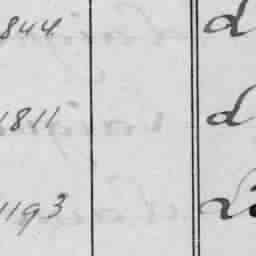 844 d
1811 d
1193